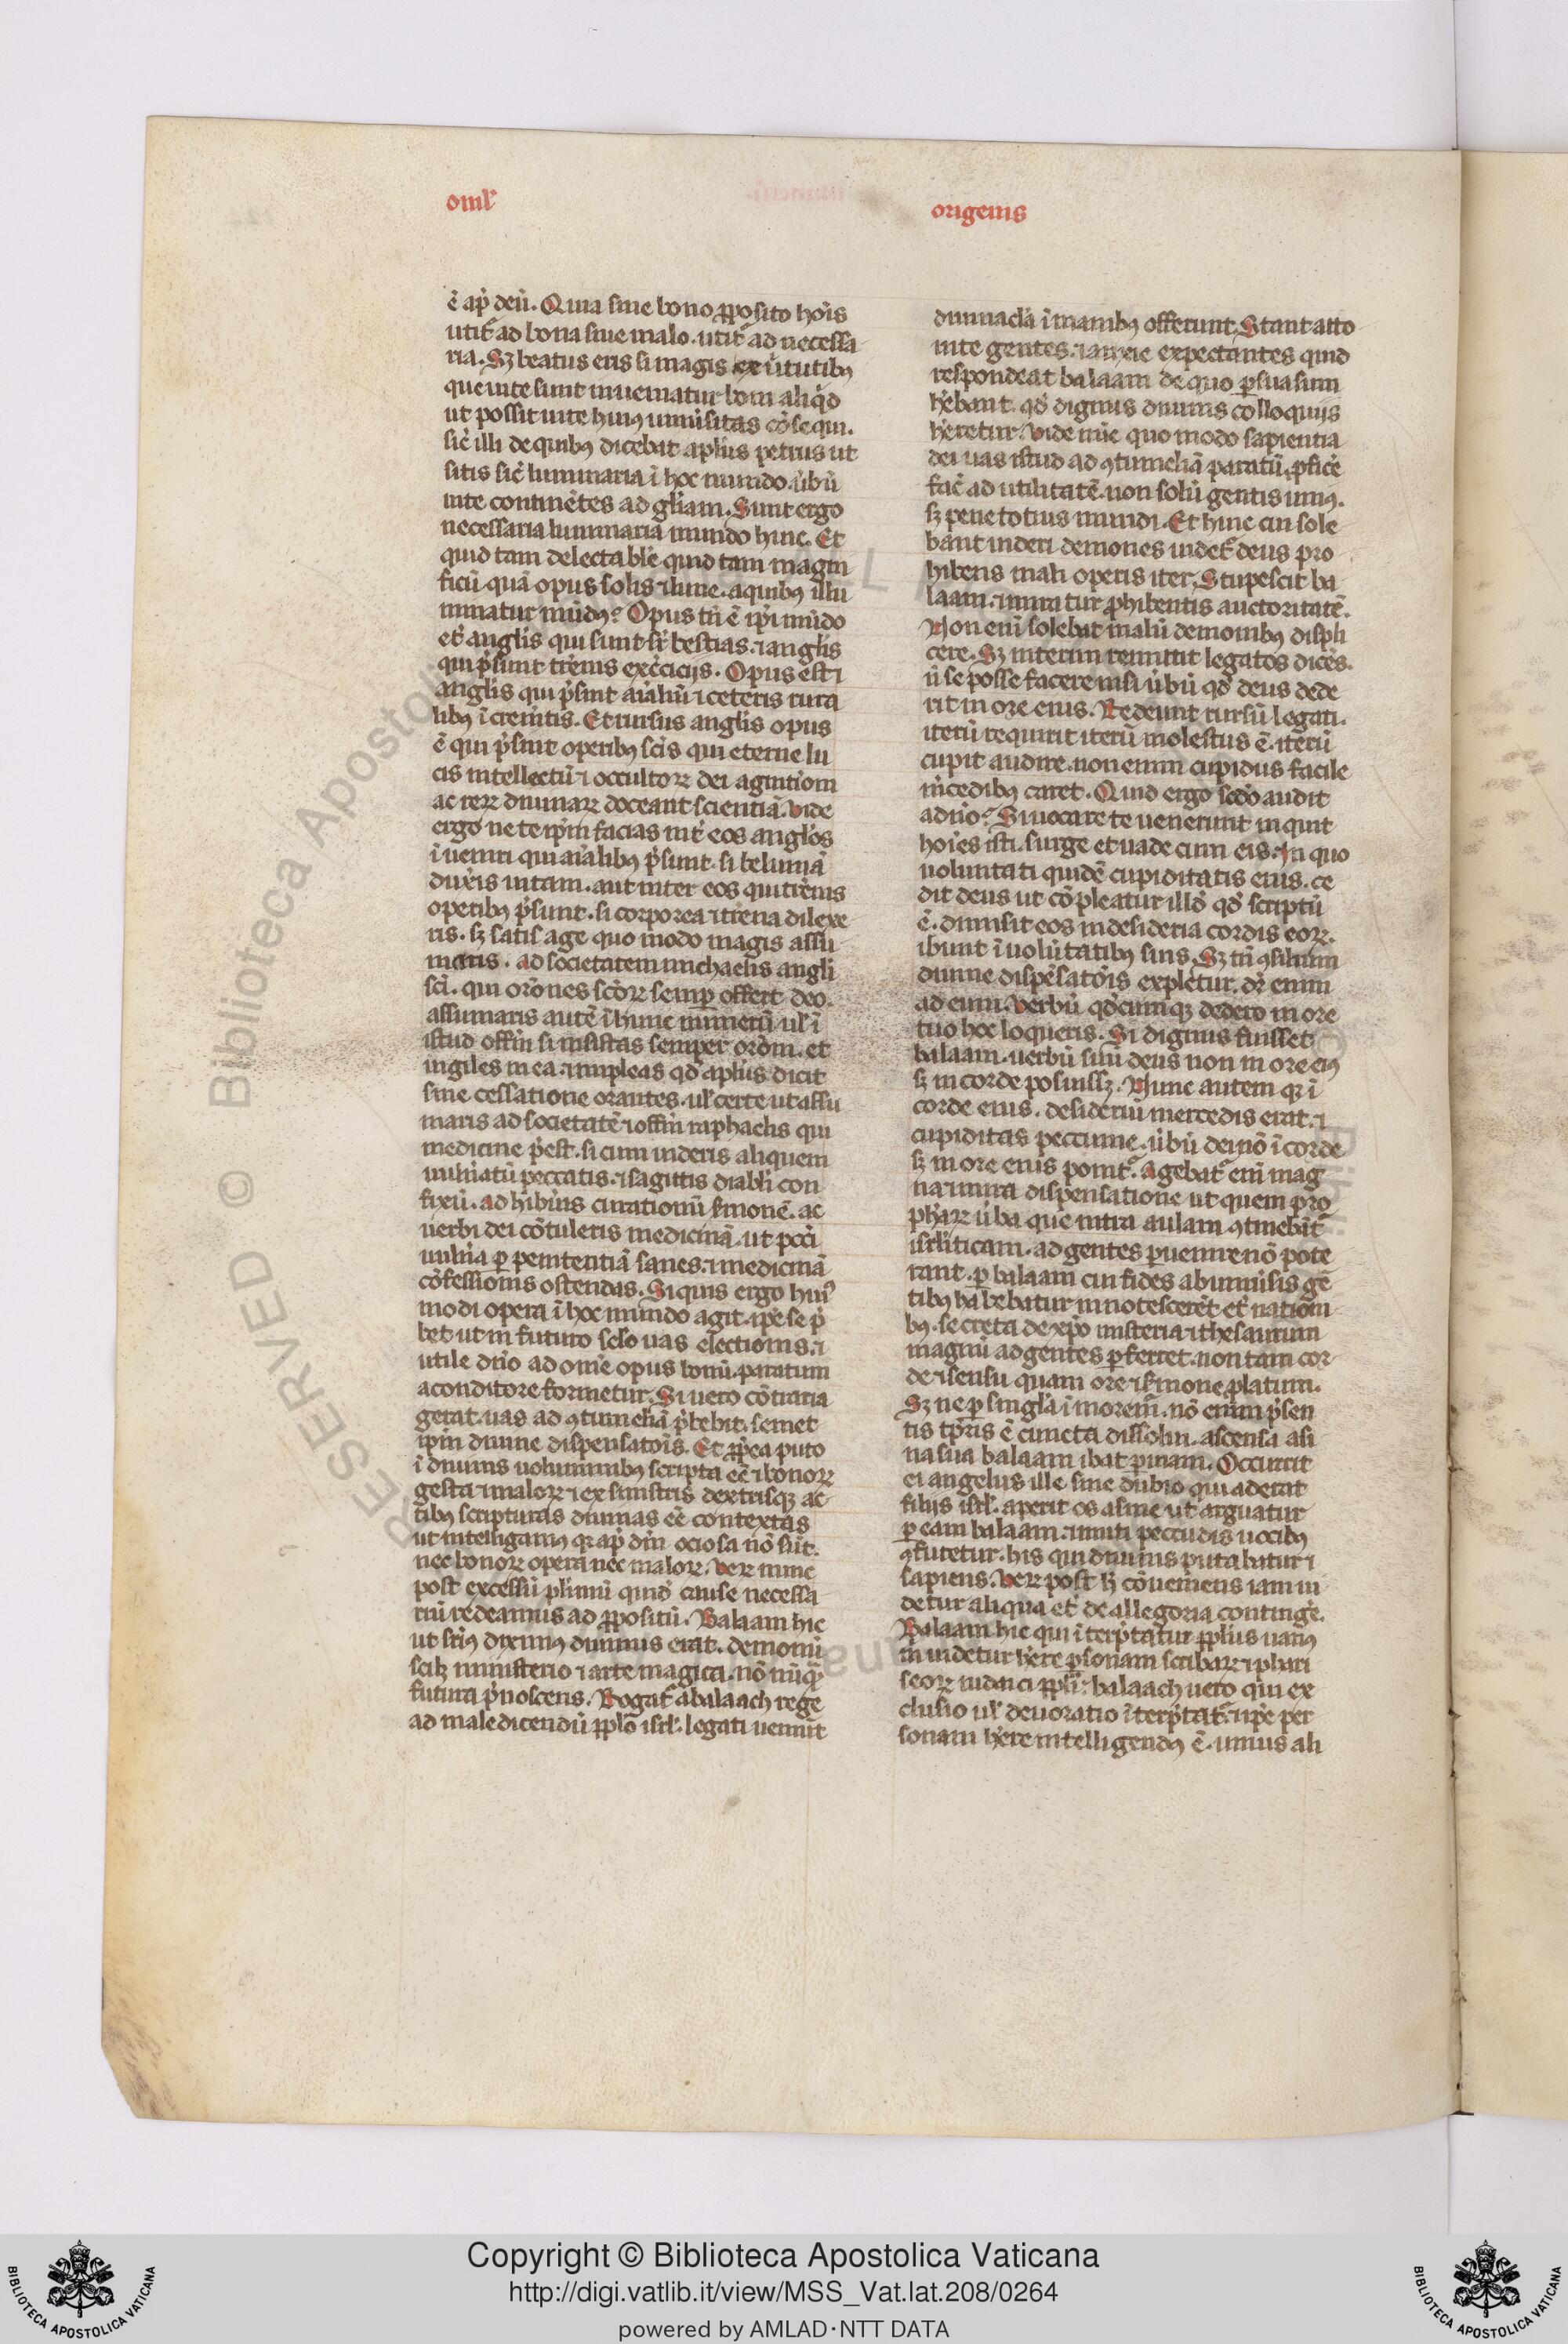 oml'
origenis
ē ap̄ deū. Quia siue bono ꝓposito hoīs
utit̄ ad bona siue malo. utit̄ ad necessa
ria. Sꝫ beatus eris si magis ex ũtutibꝰ
que in te sunt inueniatur boni aliqͥd
ut possit in te huiꝰ uniũsitas cōsequi.
sic̄ illi de quibꝰ dicebat apl̄us petrus ut
sitis sic̄ luminaria ī hoc mundo. ũbū
uite continētes ad gl̄iam. Sunt ergo
necessaria luminaria mundo huic. Et
quid tam delectabile quid tam magni
ficū quā opus solis ⁊ lune. a quibꝰ illu
minatur mūdꝰ? Opus tn̄ ē ip̄i mūdo
et̄ angl̄is qui sunt sr̄ bestias. ⁊ angl̄is
qui p̄sunt tr̄enis exc̄icijs. Opus est ⁊
angl̄is qui p̄sint aīaliū ⁊ ceteris rura
libꝰ īcrem̄tis. Et rursus angl̄is opus
ē qui p̄sint operibꝰ sc̄is qui eterne lu
cis intellectū ⁊ occultoꝝ dei agnitiom
ac reꝝ diuinaꝝ doceant scientiā. Vide
ergo ne te ip̄m facias int̄ eos angl̄os
īueniri qui aīalibꝰ p̄sunt. si beluinā
dux̄is uitam. aut inter eos qui tr̄enis
operibꝰ p̄sunt. si corporea ⁊ trena dilexe
ris. sꝫ satis age quo modo magis assu
maris. ad societatem michaelis angli
sc̄i. qui orōnes sc̄oꝝ semꝑ offert deo.
assumaris autē ī hunc numerū ul̄ ī
istud offm̄ si insistas semper orōm. et
uigiles in ea. ⁊ impleas qd̄ apl̄us dicit
sine cessatione orantes. ul̄ certe ut assu
maris ad societatē ⁊ offm̄ raphaelis qui
medicine p̄est. si cum uideris aliquem
uuln̄atū peccatis. ⁊ sagittis diabli con
fixū. adhibūs curationū s̄monē. ac
uerbi dei cōtuleris medicinā. ut pcc̄i
uuln̄a ꝑ penitentiā sanes. ⁊ medicinā
cōfessionis ostendas. Si quis ergo huiꝰ
modi opera ī hoc mundo agit. ip̄e se p̄
bet ut in futuro sclo uas electionis. ⁊
utile dn̄o ad omē opus bonū. paratum
a conditore formetur. Si uero cōtraria
gerat. uas ad ꝯtumeliā p̄bebit. semet
ip̄m diuine dispensatōis. Et ꝓpea puto
ī diuinis uoluminibꝰ scripta eē ⁊ bonoꝝ
gesta ⁊ maloꝝ ⁊ ex sinistris dextrisqꝫ ac
tibꝰ scripturas diuinas eē contextas
ut intelligamꝰ qꝛ ap̄ dm̄ ociosa nō sūt.
nec bonoꝝ opera nec maloꝝ. Veꝝ nunc
post excessū plīmū quid̄ cause necessa
riū redeamus ad ꝓpositū. Balaam hic
ut sr̄iꝰ diximꝰ diuinus erat. demonū
scilꝫ ministerio ⁊ arte magica. nō nūqͣ
futura p̄noscens. Rogat̄ a balaach rege
ad maledicendū ppl̄o isrl̄. legati ueniūt
diuinacl̄a ī manibꝰ offerunt. Stant atto
nite gentes. ⁊ anxie expectantes quid
respondeat balaam de quo ꝑsuasum
h̄ebant. qd̄ dignus diuinis colloquijs
h̄eretur. Vide nūc quo modo sapientia
dei uas istud qd ꝯtumeliā paratū. ꝓfic̄e
fac̄ ad utilitatē. non solū gentis uniꝰ.
sꝫ pene totius mundi. Et huic cui sole
bant uideri demones uidet̄ deus pro
hibens mali operis iter. Stupescit ba
laam. ⁊ miratur ꝓhibentis auctoritatē.
Non enī solebat malū demonibꝰ displi
cere. Sꝫ interim remittit legatos dicēs.
ñ se posse facere nisi ũbū qd̄ deus dede
rit in ore eius. Redeunt rursū legati.
iterū requirit iterū molestus ē. iterū
cupit audire. non enim cupidus facile
m̄cedibꝰ caret. Quid ergo scdo audit
a dn̄o? Si uocare te uenerunt inquit
hoīes isti. surge et uade cum eis. In quo
uoluntati quidē cupiditatis eius. ce
dit deus ut cōpleatur illd̄ qd̄ scriptū
ē. dimisit eos in desideria cordis eoꝝ.
ibunt ī uolūtatibꝰ suis. Sꝫ tn̄ ꝯsilium
diuine dispēsatōis expletur. dr̄ enim
ad eum. Verbū qd̄cumqꝫ dedero in ore
tuo hoc loqueris. Si dignus fuisset
balaam. uerbū suū deus non in ore eiꝰ
sꝫ in corde posuissꝫ. Nunc autem qꝛ ī
corde eius. desideriū mercedis erat. ⁊
cupiditas peccunie. ũbū dei nō ī corde
sꝫ in ore eius ponit̄. Agebat̄ enī mag
na ⁊ mira dispensatione ut quem pro
ph̄aꝝ ũba que intra aulam ꝯtinebāt̄
isrl̄iticam. ad gentes ꝑuenire nō pote
rant. ꝑ balaam cui fides ab uniũsis gē
tibꝰ habebatur innotescerēt et̄ nation
bꝰ. secreta de xp̄o misteria ⁊ thesaurum
magnū ad gentes ꝑferret. non tam cor
de ⁊ sensu quam ore ⁊ s̄mone ꝓlatum.
Sꝫ ne ꝑ singl̄a īmorem̄. nō enim p̄sen
tis tp̄ris ē cuncta dissolui. ascensa asi
na sua balaam ibat ꝑ uiam. Occurrit
ei angelus ille sine dubio qui aderat
filijs isrl̄. aperit os asine ut arguatur
ꝑ eam balaam. ⁊ muti peccudis uocibꝰ
ꝯfutetur. his qui diuinus putabatur ⁊
sapiens. Veꝝ post h̄ cōueniens iam ui
detur aliqua et̄ de allegoria contingē.
Balaam hic qui īterp̄tatur ppl̄us uanꝰ
m̄ uidetur h̄ere ꝑsonam scribaꝝ ⁊ phari
seoꝝ iudaici ppl̄i. balaach uero qui ex
clusio ul̄ deuoratio īterp̄tat̄. ⁊ ip̄e per
sonam h̄ere intelligendꝰ ē. unius ali
RESERVED © Biblioteca Apostolica
Copyright © Biblioteca Apostolica Vaticana
http://digi.vatlib.it/view/MSS_Vat.lat.208/0264
powered by AMLAD·NTT DATA
BIBLIOTECA APOSTOLICA VATICANA
BIBLIOTECA APOSTOLICA VATICANA